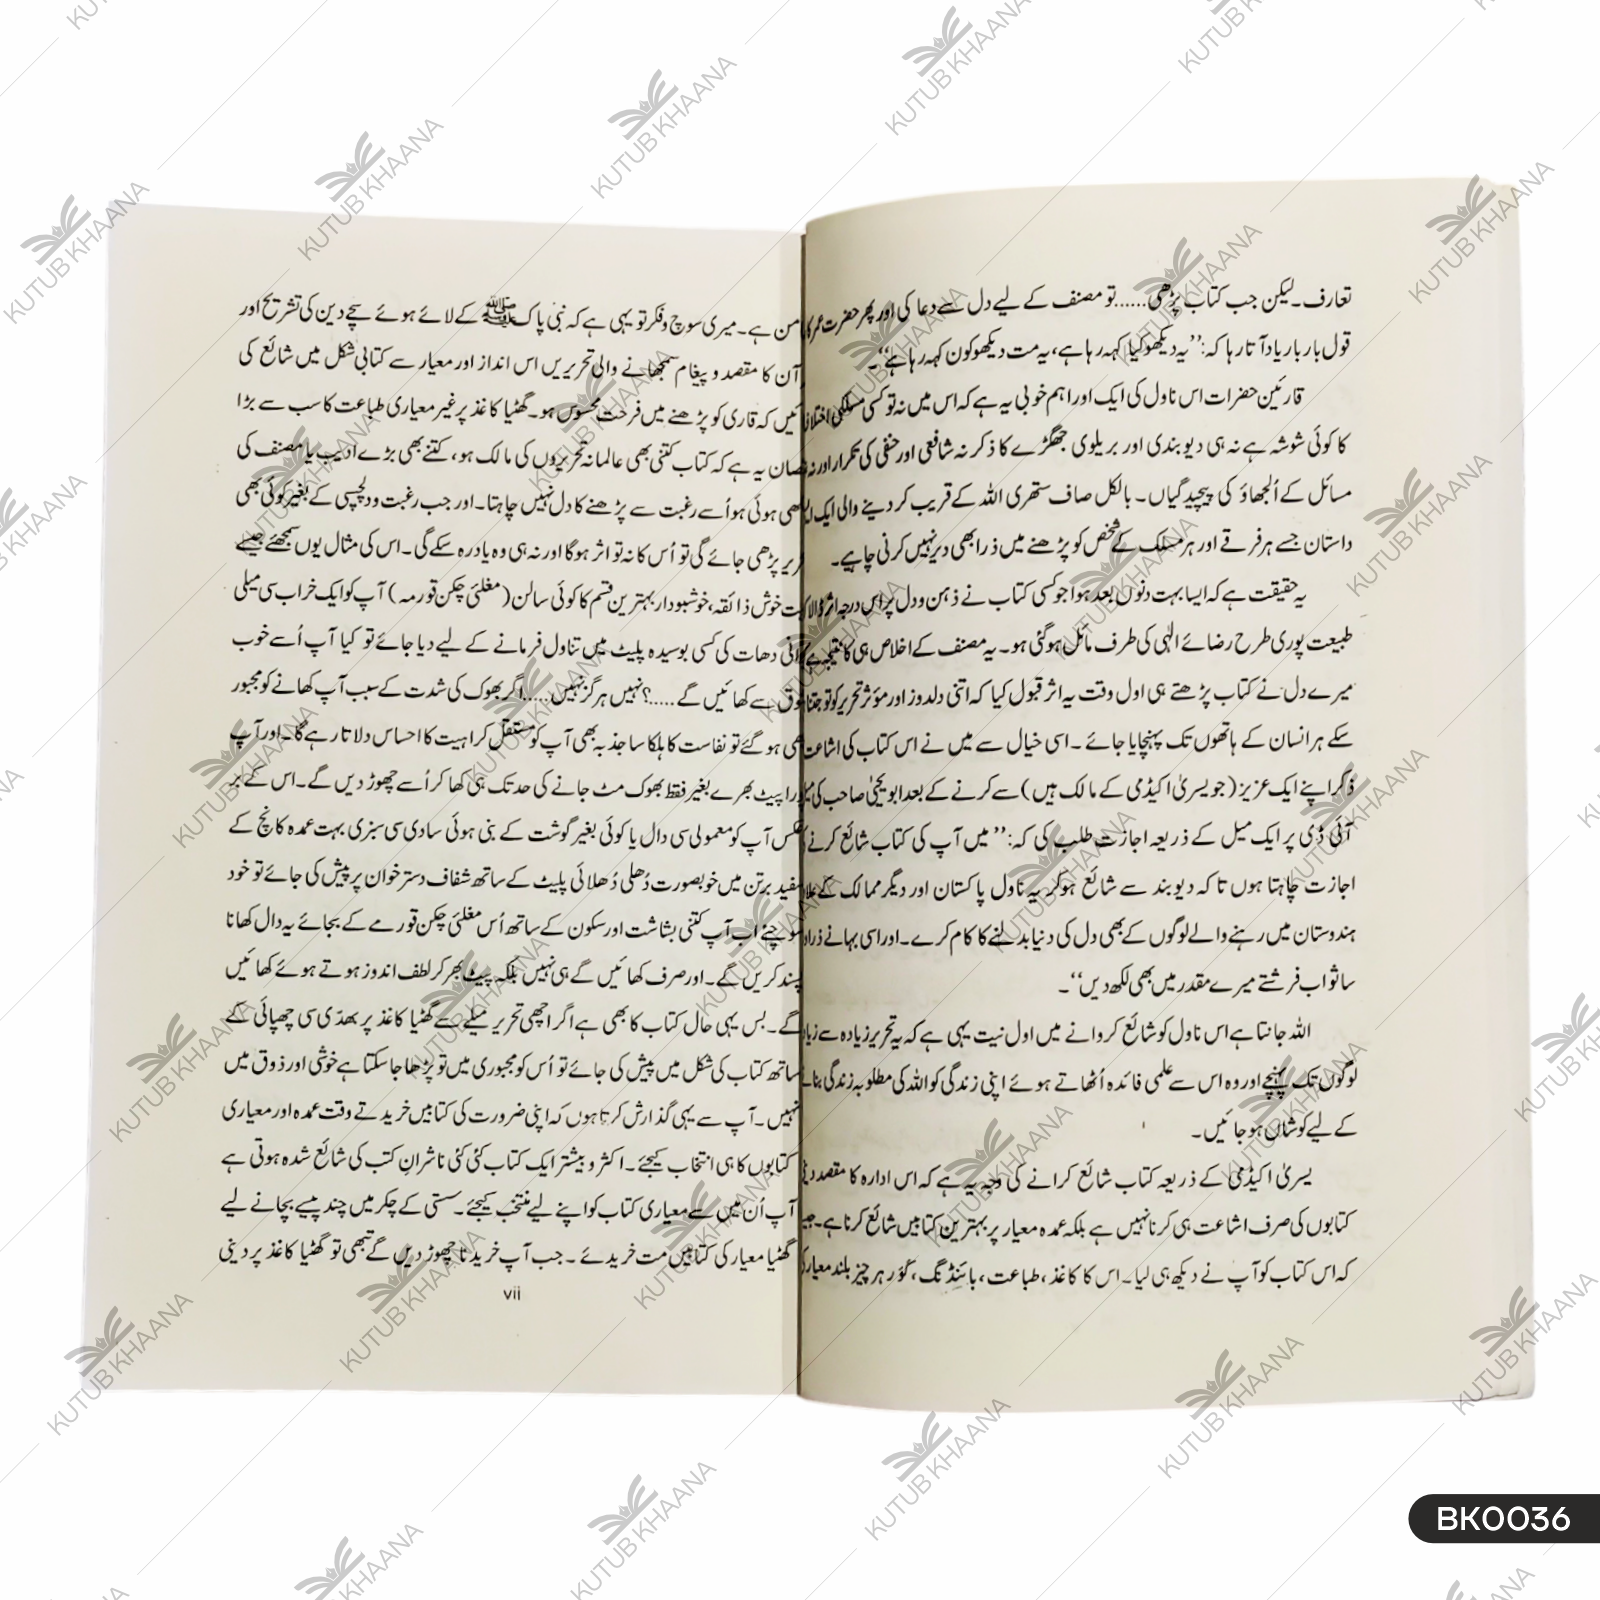 تعارف۔ لیکن جب کتاب پڑھی......تو مصنف کے لیے دل سے دعا کی اور پھر حضرت عمر کا
قول بار بار یاد آتا رہا کہ: ’’یہ دیکھو کیا کہہ رہا ہے، یہ مت دیکھو کون کہہ رہا ہے‘‘۔
قارئین حضرات اس ناول کی ایک اور اہم خوبی یہ ہے کہ اس میں نہ تو کسی مسلکی اختلاف
کا کوئی شوشہ ہے نہ ہی دیوبندی اور بریلوی جھگڑے کا ذکر نہ شافعی اور حنفی کی تکرار اور نہ
مسائل کے اُلجھاؤ کی پیچیدگیاں۔ بالکل صاف ستھری اللہ کے قریب کر دینے والی ایک
داستان جسے ہر فرقے اور ہر مسلک کے شخص کو پڑھنے میں ذرا بھی دیر نہیں کرنی چاہیے۔
یہ حقیقت ہے کہ ایسا بہت دنوں بعد ہوا جو کسی کتاب نے ذہن و دل پر اس درجہ اثر ڈالا
طبیعت پوری طرح رضائے الٰہی کی طرف مائل ہو گئی ہو۔ یہ مصنف کے اخلاص ہی کا نتیجہ ہے
میرے دل نے کتاب پڑھتے ہی اول وقت یہ اثر قبول کیا کہ اتنی دلدوز اور مؤثر تحریر کو تو جتنا
سکے ہر انسان کے ہاتھوں تک پہنچایا جائے۔ اسی خیال سے میں نے اس کتاب کی اشاعت
ذکر اپنے ایک عزیز (جو یسریٰ اکیڈمی کے مالک ہیں) سے کرنے کے بعد ابو یحییٰ صاحب کی
آئی ڈی پر ایک میل کے ذریعہ اجازت طلب کی کہ: ’’میں آپ کی کتاب شائع کرنے
اجازت چاہتا ہوں تا کہ دیوبند سے شائع ہو کر یہ ناول پاکستان اور دیگر ممالک کے
ہندوستان میں رہنے والے لوگوں کے بھی دل کی دنیا بدلنے کا کام کرے۔ اور اسی بہانے ذرا
سا ثواب فرشتے میرے مقدر میں بھی لکھ دیں‘‘۔
اللہ جانتا ہے اس ناول کو شائع کروانے میں اول نیت یہی ہے کہ یہ تحریر زیادہ سے
لوگوں تک پہنچے اور وہ اس سے علمی فائدہ اُٹھاتے ہوئے اپنی زندگی کو اللہ کی مطلوبہ زندگی بنانے
کے لیے کوشاں ہو جائیں۔
یسریٰ اکیڈمی کے ذریعہ کتاب شائع کرانے کی وجہ یہ ہے کہ اس ادارہ کا مقصد
کتابوں کی صرف اشاعت ہی کرنا نہیں ہے بلکہ عمدہ معیار پر بہترین کتابیں شائع کرنا ہے۔
کہ اس کتاب کو آپ نے دیکھ ہی لیا۔ اس کا کاغذ، طباعت، بائنڈنگ، گؤر ہر چیز بلند معیار
من ہے۔ میری سوچ و فکر تو یہی ہے کہ نبی پاک ﷺ کے لائے ہوئے سچے دین کی تشریح اور
آن کا مقصد و پیغام سمجھانے والی تحریریں اس انداز اور معیار سے کتابی شکل میں شائع کی
ئیں کہ قاری کو پڑھنے میں فرحت محسوس ہو۔ گھٹیا کاغذ پر غیر معیاری طباعت کا سب سے بڑا
صان یہ ہے کہ کتاب کتنی بھی عالمانہ تحریروں کی مالک ہو، کتنے بھی بڑے ادیب یا مصنف کی
ھی ہوئی ہو اُسے رغبت سے پڑھنے کا دل نہیں چاہتا۔ اور جب رغبت و دلچسپی کے بغیر کوئی بھی
ریر پڑھی جائے گی تو اُس کا نہ تو اثر ہوگا اور نہ ہی وہ یاد رہ سکے گی۔ اس کی مثال یوں سمجھئے جیسے
ت خوش ذائقہ، خوشبودار بہترین قسم کا کوئی سالن (مغلئی چکن قورمہ) آپ کو ایک خراب سی میلی
رانی دھات کی کسی بوسیدہ پلیٹ میں تناول فرمانے کے لیے دیا جائے تو کیا آپ اُسے خوب
وق سے کھائیں گے.....؟ نہیں ہرگز نہیں.....اگر بھوک کی شدت کے سبب آپ کھانے کو مجبور
ھی ہو گئے تو نفاست کا ہلکا سا جذبہ بھی آپ کو مستقل کراہیت کا احساس دلاتا رہے گا۔ اور آپ
ورا پیٹ بھرے بغیر فقط بھوک مٹ جانے کی حد تک ہی کھا کر اُسے چھوڑ دیں گے۔ اس کے بر
عکس آپ کو معمولی سی دال یا کوئی بغیر گوشت کے بنی ہوئی سادی سی سبزی بہت عمدہ کانچ کے
سفید برتن میں خوبصورت دُھلی دُھلائی پلیٹ کے ساتھ شفاف دسترخوان پر پیش کی جائے تو خود
سوچئے اب آپ کتنی بشاشت اور سکون کے ساتھ اُس مغلئی چکن قورمے کے بجائے یہ دال کھانا
پسند کریں گے۔ اور صرف کھائیں گے ہی نہیں بلکہ پیٹ بھر کر لطف اندوز ہوتے ہوئے کھائیں
گے۔ بس یہی حال کتاب کا بھی ہے اگر اچھی تحریر میلے سے گھٹیا کاغذ پر بھدّی سی چھپائی کے
ساتھ کتاب کی شکل میں پیش کی جائے تو اُس کو مجبوری میں تو پڑھا جا سکتا ہے خوشی اور ذوق میں
نہیں۔ آپ سے یہی گذارش کرتا ہوں کہ اپنی ضرورت کی کتابیں خریدتے وقت عمدہ اور معیاری
کتابوں کا ہی انتخاب کیجئے۔ اکثر و بیشتر ایک کتاب کئی کئی ناشرانِ کتب کی شائع شدہ ہوتی ہے
آپ اُن میں سے معیاری کتاب کو اپنے لیے منتخب کیجئے۔ سستی کے چکر میں چند پیسے بچانے کے لیے
گھٹیا معیار کی کتابیں مت خریدئے۔ جب آپ خریدنا چھوڑ دیں گے تبھی تو گھٹیا کاغذ پر دینی
vii
BK0036
KUTUB KHAANA